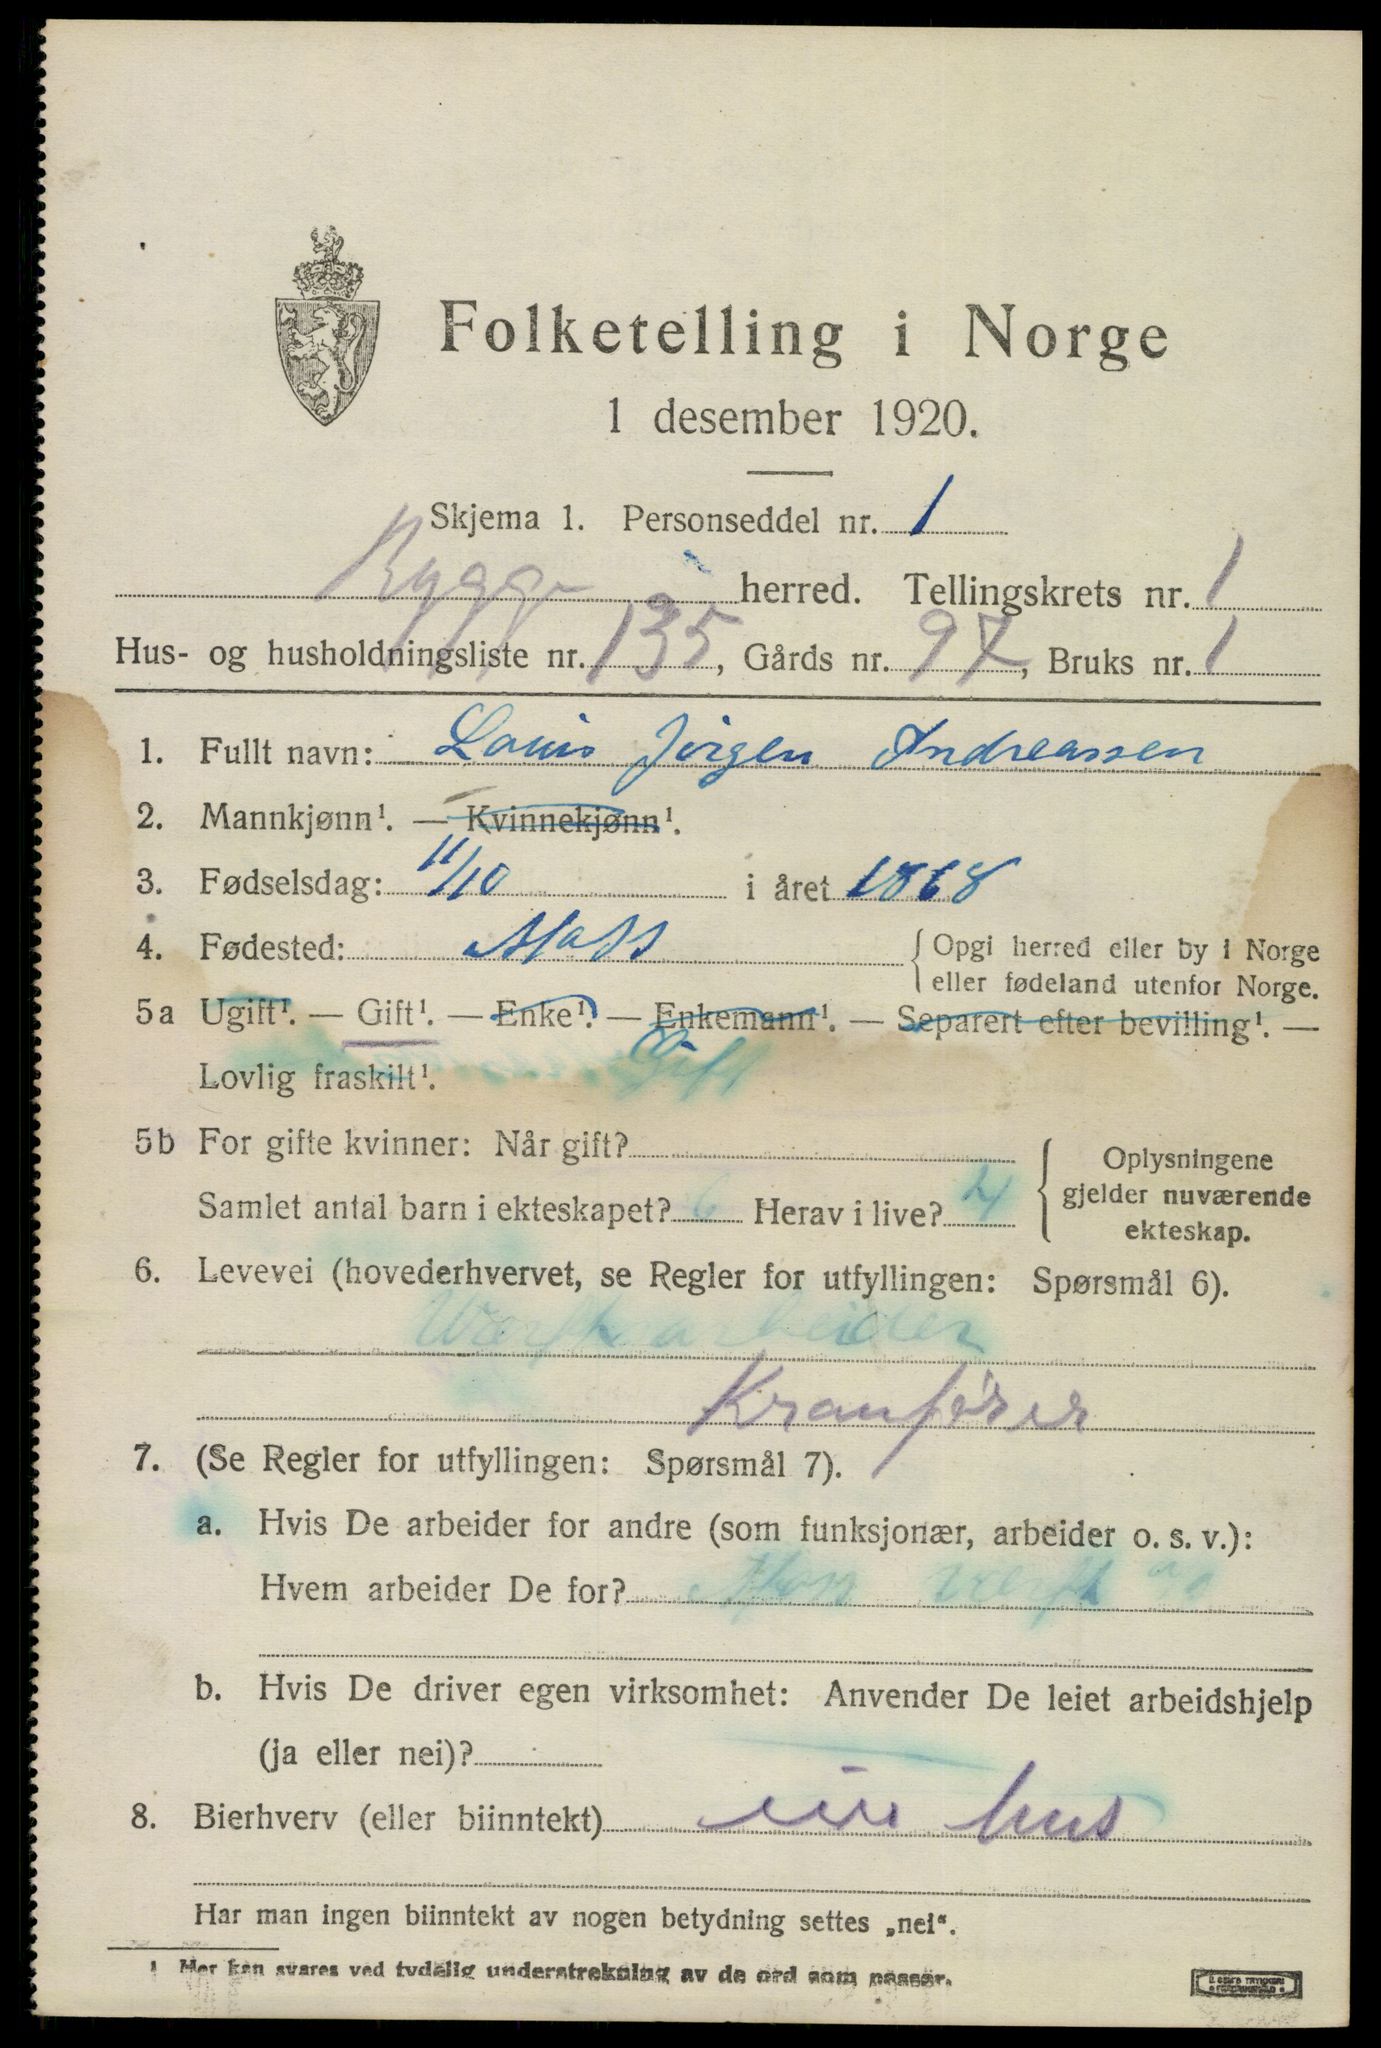 Folketelling i Norge
1 desember 1920.
Skjema 1. Personseddel nr. 1
Rygge herred. Tellingskrets nr. 1
Hus- og husholdningsliste nr. 135, Gårds nr. 97, Bruks nr. 1
1. Fullt navn: Louis Jörgen Andreassen
2. Mannkjønn¹. — Kvinnekjønn¹.
3. Fødselsdag: 11/10 i året 1868
4. Fødested: Moss { Opgi herred eller by i Norge
eller fødeland utenfor Norge.
5a Ugift¹. — Gift¹. — Enke¹. — Enkemann¹. — Separert efter bevilling¹. —
Lovlig fraskilt¹. Gift
5b For gifte kvinner: Når gift?
Samlet antal barn i ekteskapet? 6 Herav i live? 4
{ Oplysningene
gjelder nuværende
ekteskap.
6. Levevei (hovederhvervet, se Regler for utfyllingen: Spørsmål 6).
Værftsarbeider
Kranfører
7. (Se Regler for utfyllingen: Spørsmål 7).
a. Hvis De arbeider for andre (som funksjonær, arbeider o. s. v.):
Hvem arbeider De for? Moss værft
b. Hvis De driver egen virksomhet: Anvender De leiet arbeidshjelp
(ja eller nei)?
8. Bierhverv (eller biinntekt) hus
Har man ingen biinntekt av nogen betydning settes „nei“.
1 Her kan svares ved tydelig understrekning av de ord som passer.